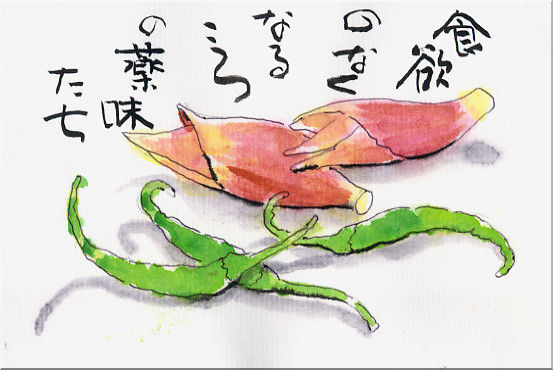 食欲
のなく
なる
ころ
の薬味
たち